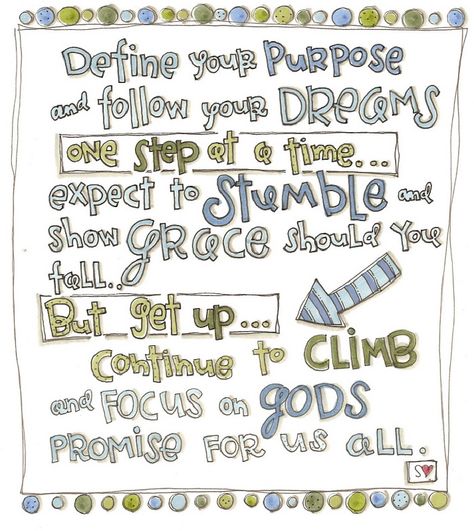 Define your PURPOSE
and follow your DREAMS
one step at a time...
expect to STUMBLE and
show GRACE should you
fall..
But get up...
Continue to CLIMB
and FOCUS on GODS
PROMISE FOR US all.
S